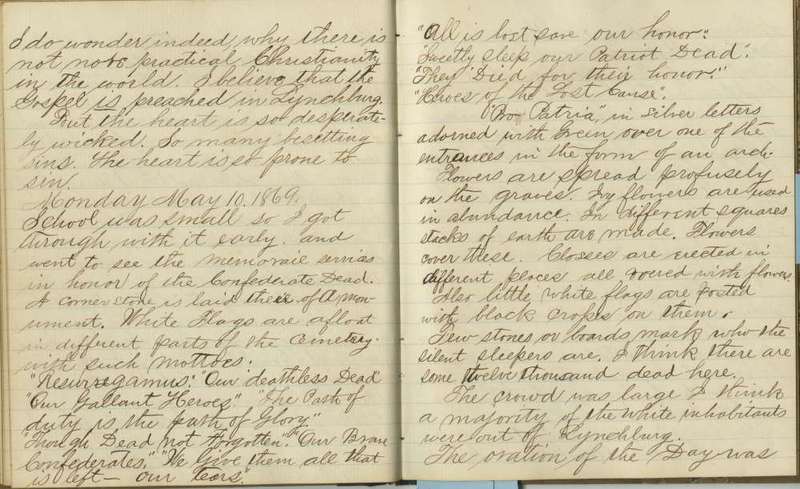 I do wonder indeed why there is
not more practical Christianity
in the world. I believe that the
Gospel is preached in Lynchburg.
But the heart is so desperate-
ly wicked. So many besetting
sins. The heart is so prone to
sin.
Monday May 10. 1869.
School was small so I got
through with it early. and
went to see the memorail servies
in honor of the Confederate Dead.
A cornerstone is laid there of a mon-
ument. White Flags are afloat
in different parts of the Cemetry.
with such mottoes:
"Resurregamus." "Our deathless Dead"
"Our Gallant Heroes." "The Path of
duty is the path of Glory."
"Though Dead not forgotten." "Our Brave
Confederates." "We give them all that
is left — our tears."
"All is lost save our honor."
"Sweetly sleep our Patriot Dead."
"They Died for their honor."
"Heroes of the Lost Cause".
"Pro Patria," in Silver letters
adorned with Green over one of the
entrances in the form of an arch.
Flowers are spread profusely
on the graves. Ivy flowers are used
in abundance. In different squares
stacks of earth are made. Flowers
cover these. Closses are erected in
different places all covered with flowers
Also little white flags are posted
with black crapes on them.
Few stones or boards mark who the
silent sleepers are. I think there are
some twelve thousand dead here.
The crowd was large I think
a majority of the white inhabitants
were out of Lynchburg.
The oration of the Day was